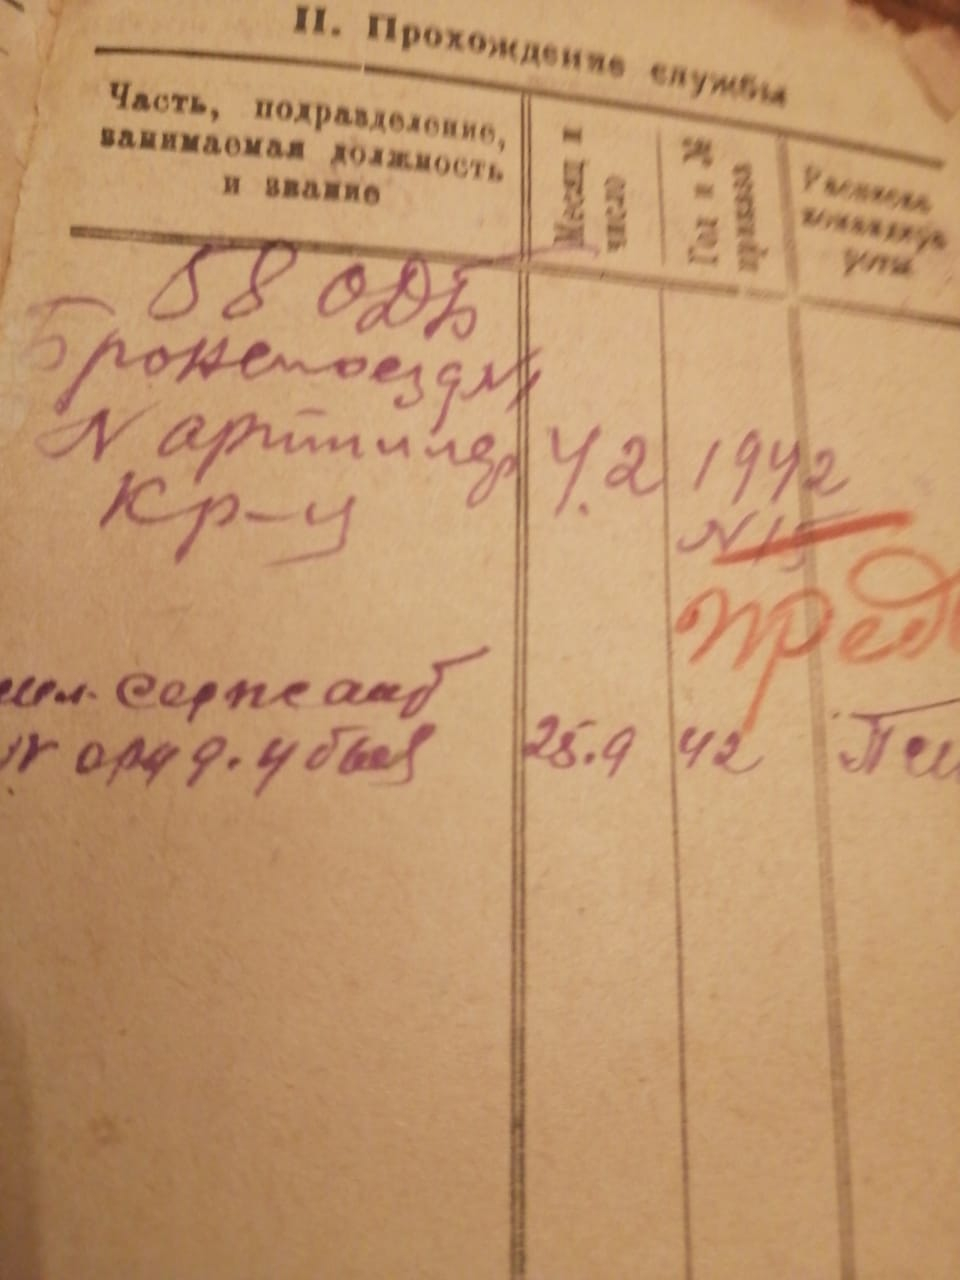 II. Прохождение службы
Часть, подразделение,
занимаемая должность
и звание
Месяц и
число
Год и №
приказа
Расписка
роты
58 ОДБ
Бронепоезд №1
N артиллер 4.2 1942
Кр-ц
N 15
мл. сержант
N оруд. убыл 25.9 42